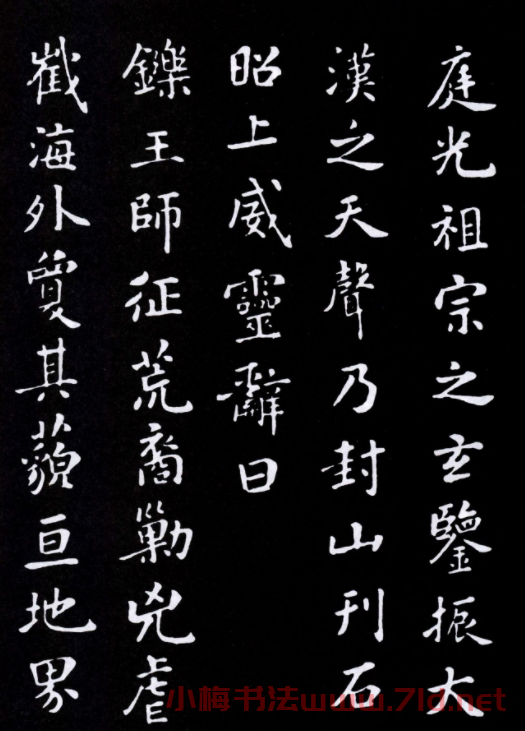 庭光祖宗之玄鑒振大
漢之天聲乃封山刊石
昭上威靈辭曰
鑠王師征荒裔勦兇虐
截海外夐其藐亘地界
小梅书法www.71d.net